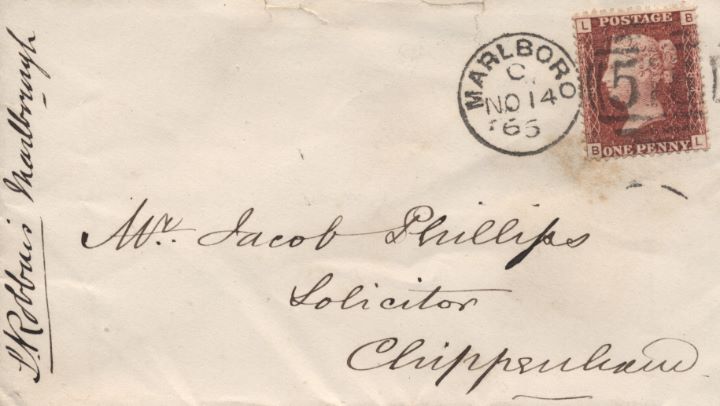 MARLBORO
C
NO 14
65
L B
POSTAGE
5
B L
ONE PENNY
Mr. Jacob Phillips
Solicitor
Chippenham
Robbins Marlborough